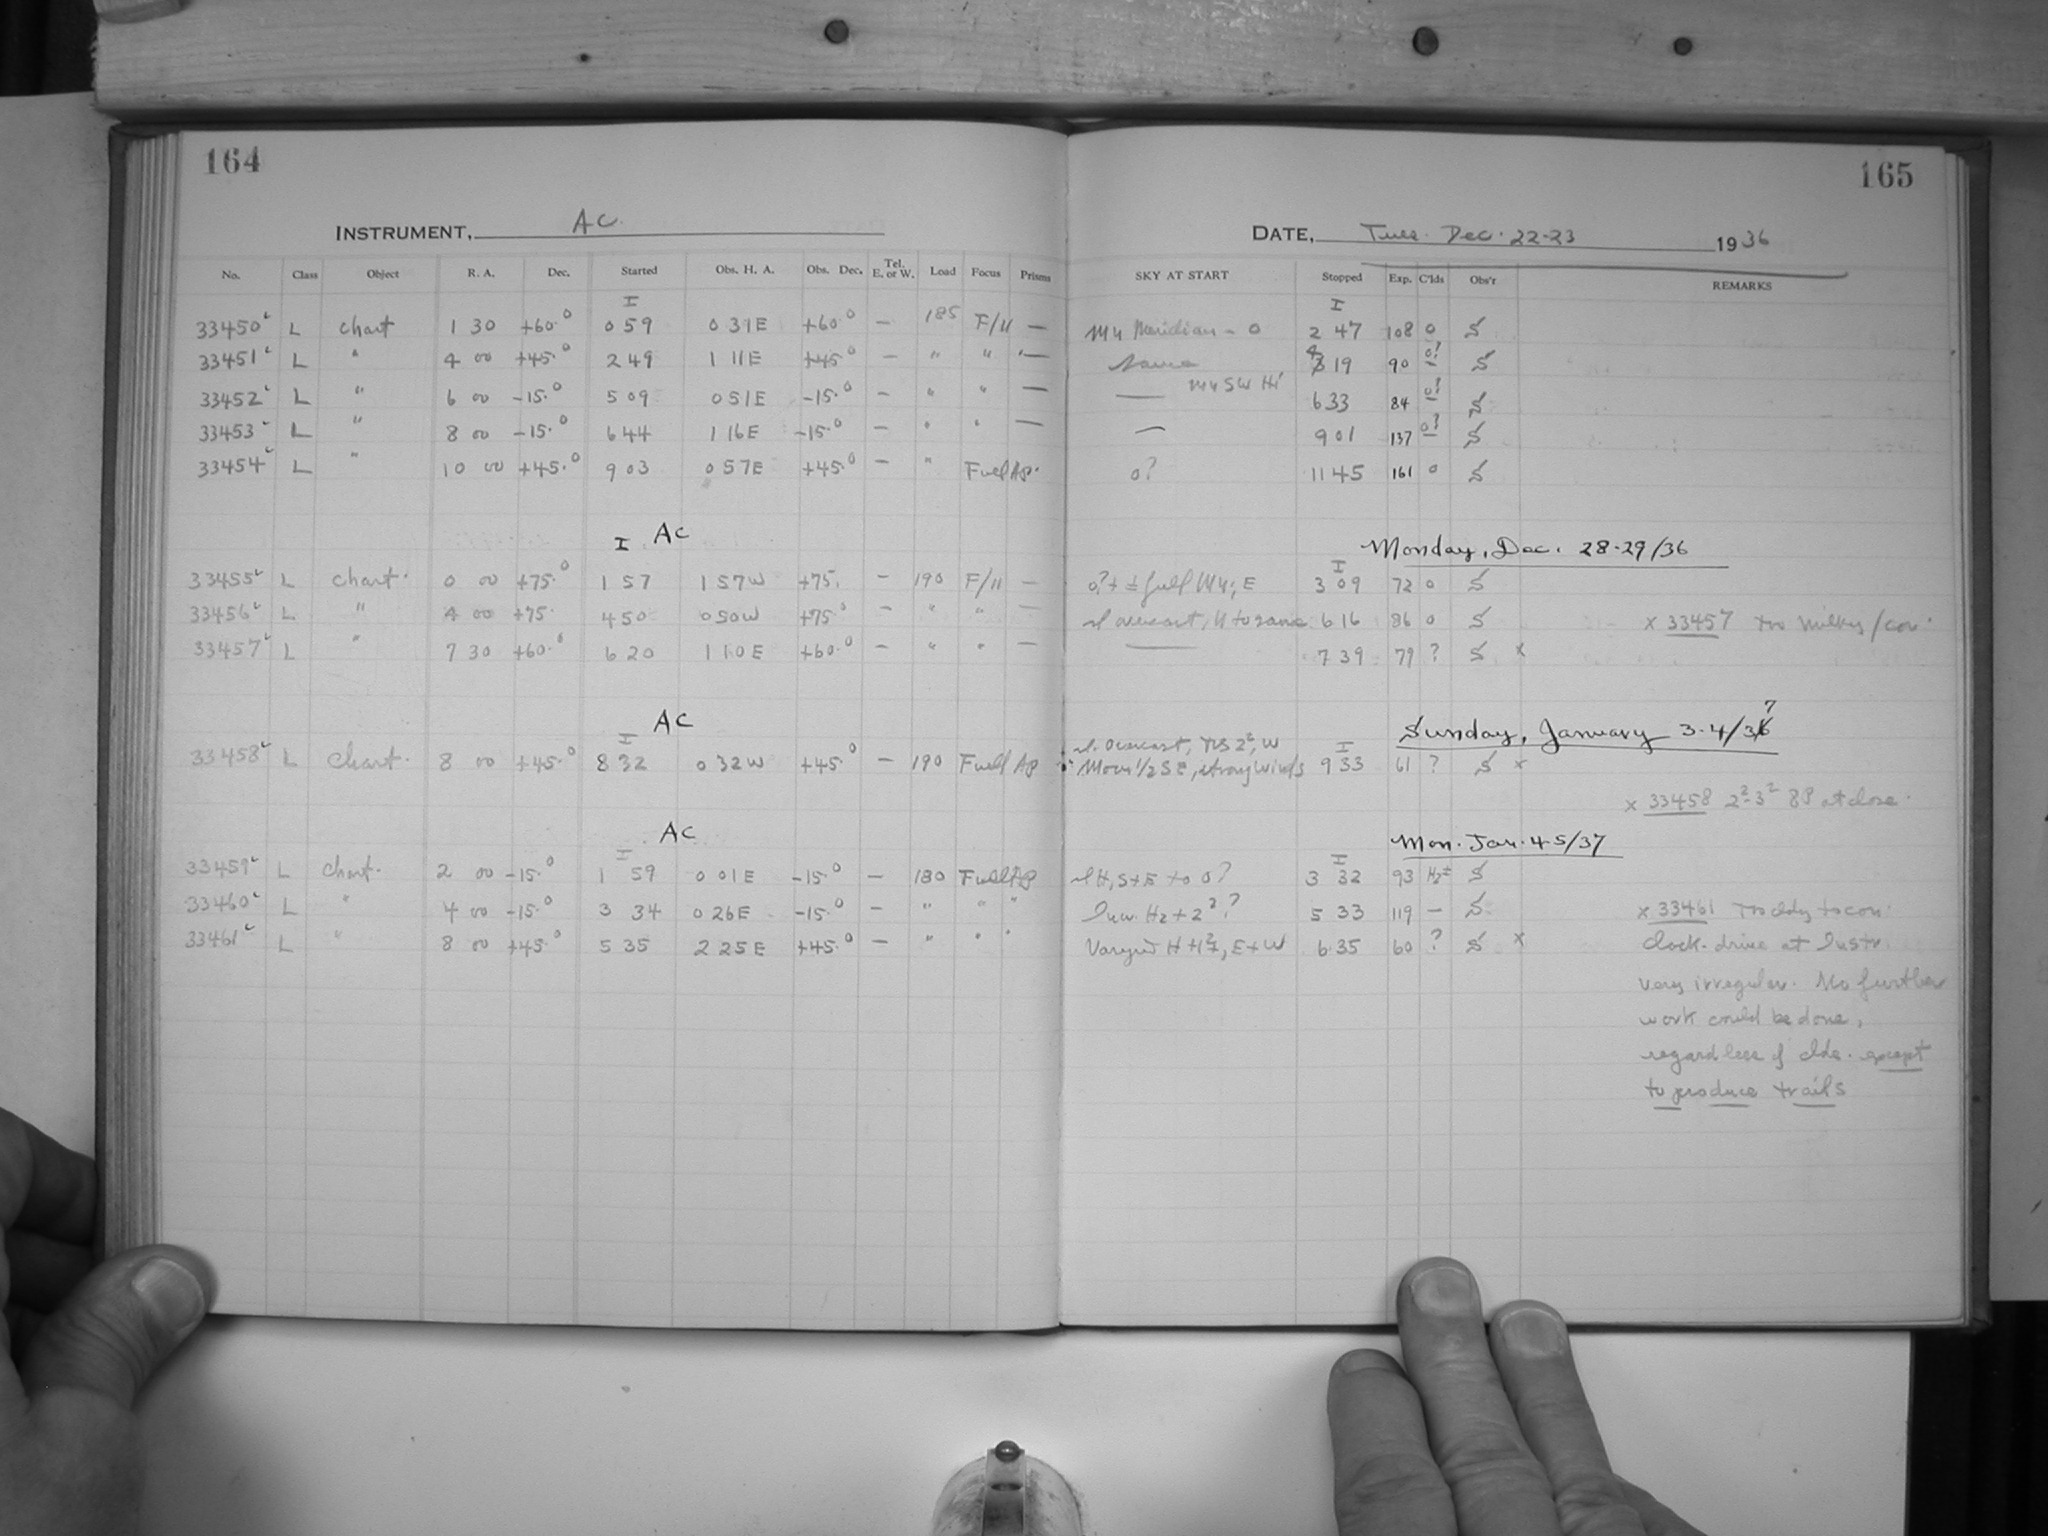 164
165
INSTRUMENT, AC.
DATE, Tues. Dec. 22-23 1936
No. Class Object R. A. Dec. Started Obs. H. A. Obs. Dec. Tel. E. or W. Load Focus Prisms SKY AT START Stopped Exp. C'lds Obs'r REMARKS
I I
33450 L Chart 1 30 +60.0 0 59 0 31E +60.0 — 185 F/11 — Meridian - 0 2 47 108 0 S
33451 L " 4 00 +45.0 2 49 1 11E +45.0 — " " — Same 4 19 90 0? S
33452 L " 6 00 -15.0 5 09 0 51E -15.0 — " " — — SW 6 33 84 0? S
33453 L " 8 00 -15.0 6 44 1 16E -15.0 — " " — — 9 01 137 0? S
33454 L " 10 00 +45.0 9 03 0 57E +45.0 — " Full Ap. 0? 11 45 161 0 S
I AC Monday, Dec. 28-29/36
I
33455 L Chart. 0 00 +75.0 1 57 1 57W +75. — 190 F/11 — E 3 09 72 0 S
33456 L " 4 00 +75. 4 50 0 50W +75.0 — " " — overcast, 6 16 86 0 S x 33457 too milky/con.
33457 L " 7 30 +60.0 6 20 1 10E +60.0 — " " — — 7 39 79 ? S x
AC Sunday, January 3-4/37
I overcast, W I
33458 L Chart. 8 00 +45.0 8 32 0 32W +45.0 — 190 Full Ap Moon 1/2 SE, strong winds 9 33 61 ? S x
x 33458 2²-3² 8P at close.
AC Mon. Jan. 4-5/37
I I
33459 L Chart. 2 00 -15.0 1 59 0 01E -15.0 — 180 Full Ap to 0? 3 32 93 H2± S
33460 L " 4 00 -15.0 3 34 0 26E -15.0 — " " " Incr. H2 + 2²? 5 33 119 — S x 33461 Too cldy to con.
33461 L " 8 00 +45.0 5 35 2 25E +45.0 — " " " E+W 6 35 60 ? S x Clock-drive at Instr.
very irregular. No further
work could be done,
regardless of clds. except
to produce trails